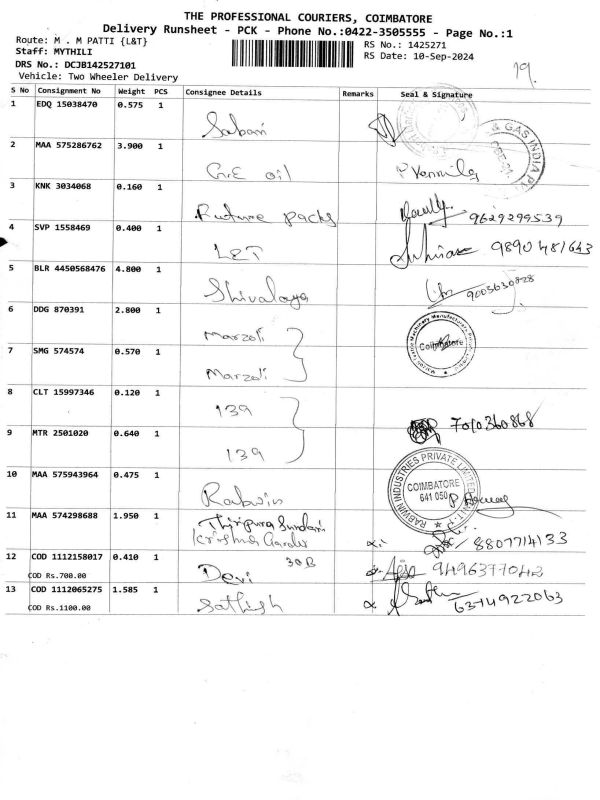 THE PROFESSIONAL COURIERS, COIMBATORE
Delivery Runsheet - PCK - Phone No.:0422-3505555 - Page No.:1
Route: M . M PATTI {L&T}
RS No.: 1425271
Staff: MYTHILI
RS Date: 10-Sep-2024
DRS No.: DCJB142527101
19.
Vehicle: Two Wheeler Delivery
S No Consignment No Weight PCS Consignee Details Remarks Seal & Signature
1 EDQ 15038470 0.575 1 Sabari
& GAS INDIA
2 MAA 575286762 3.900 1 G.E oil
3 KNK 3034068 0.160 1 Future packs 9629299539
4 SVP 1558469 0.400 1 L&T 9890481643
5 BLR 4450568476 4.800 1 Shivalaya 9003630828
6 DDG 870391 2.800 1 Marzoli
Coimbatore
7 SMG 574574 0.570 1 Marzoli
8 CLT 15997346 0.120 1 139 7010360868
9 MTR 2501020 0.640 1 139
10 MAA 575943964 0.475 1 Rabwin
RABWIN INDUSTRIES PRIVATE LIMITED
COIMBATORE
641 050
11 MAA 574298688 1.950 1 Thripura Sundari
Krishna Garden 8807714133
12 COD 1112158017 0.410 1 Devi 30B 9496377042
COD Rs.700.00
13 COD 1112065275 1.585 1 Sathish 6374922063
COD Rs.1100.00